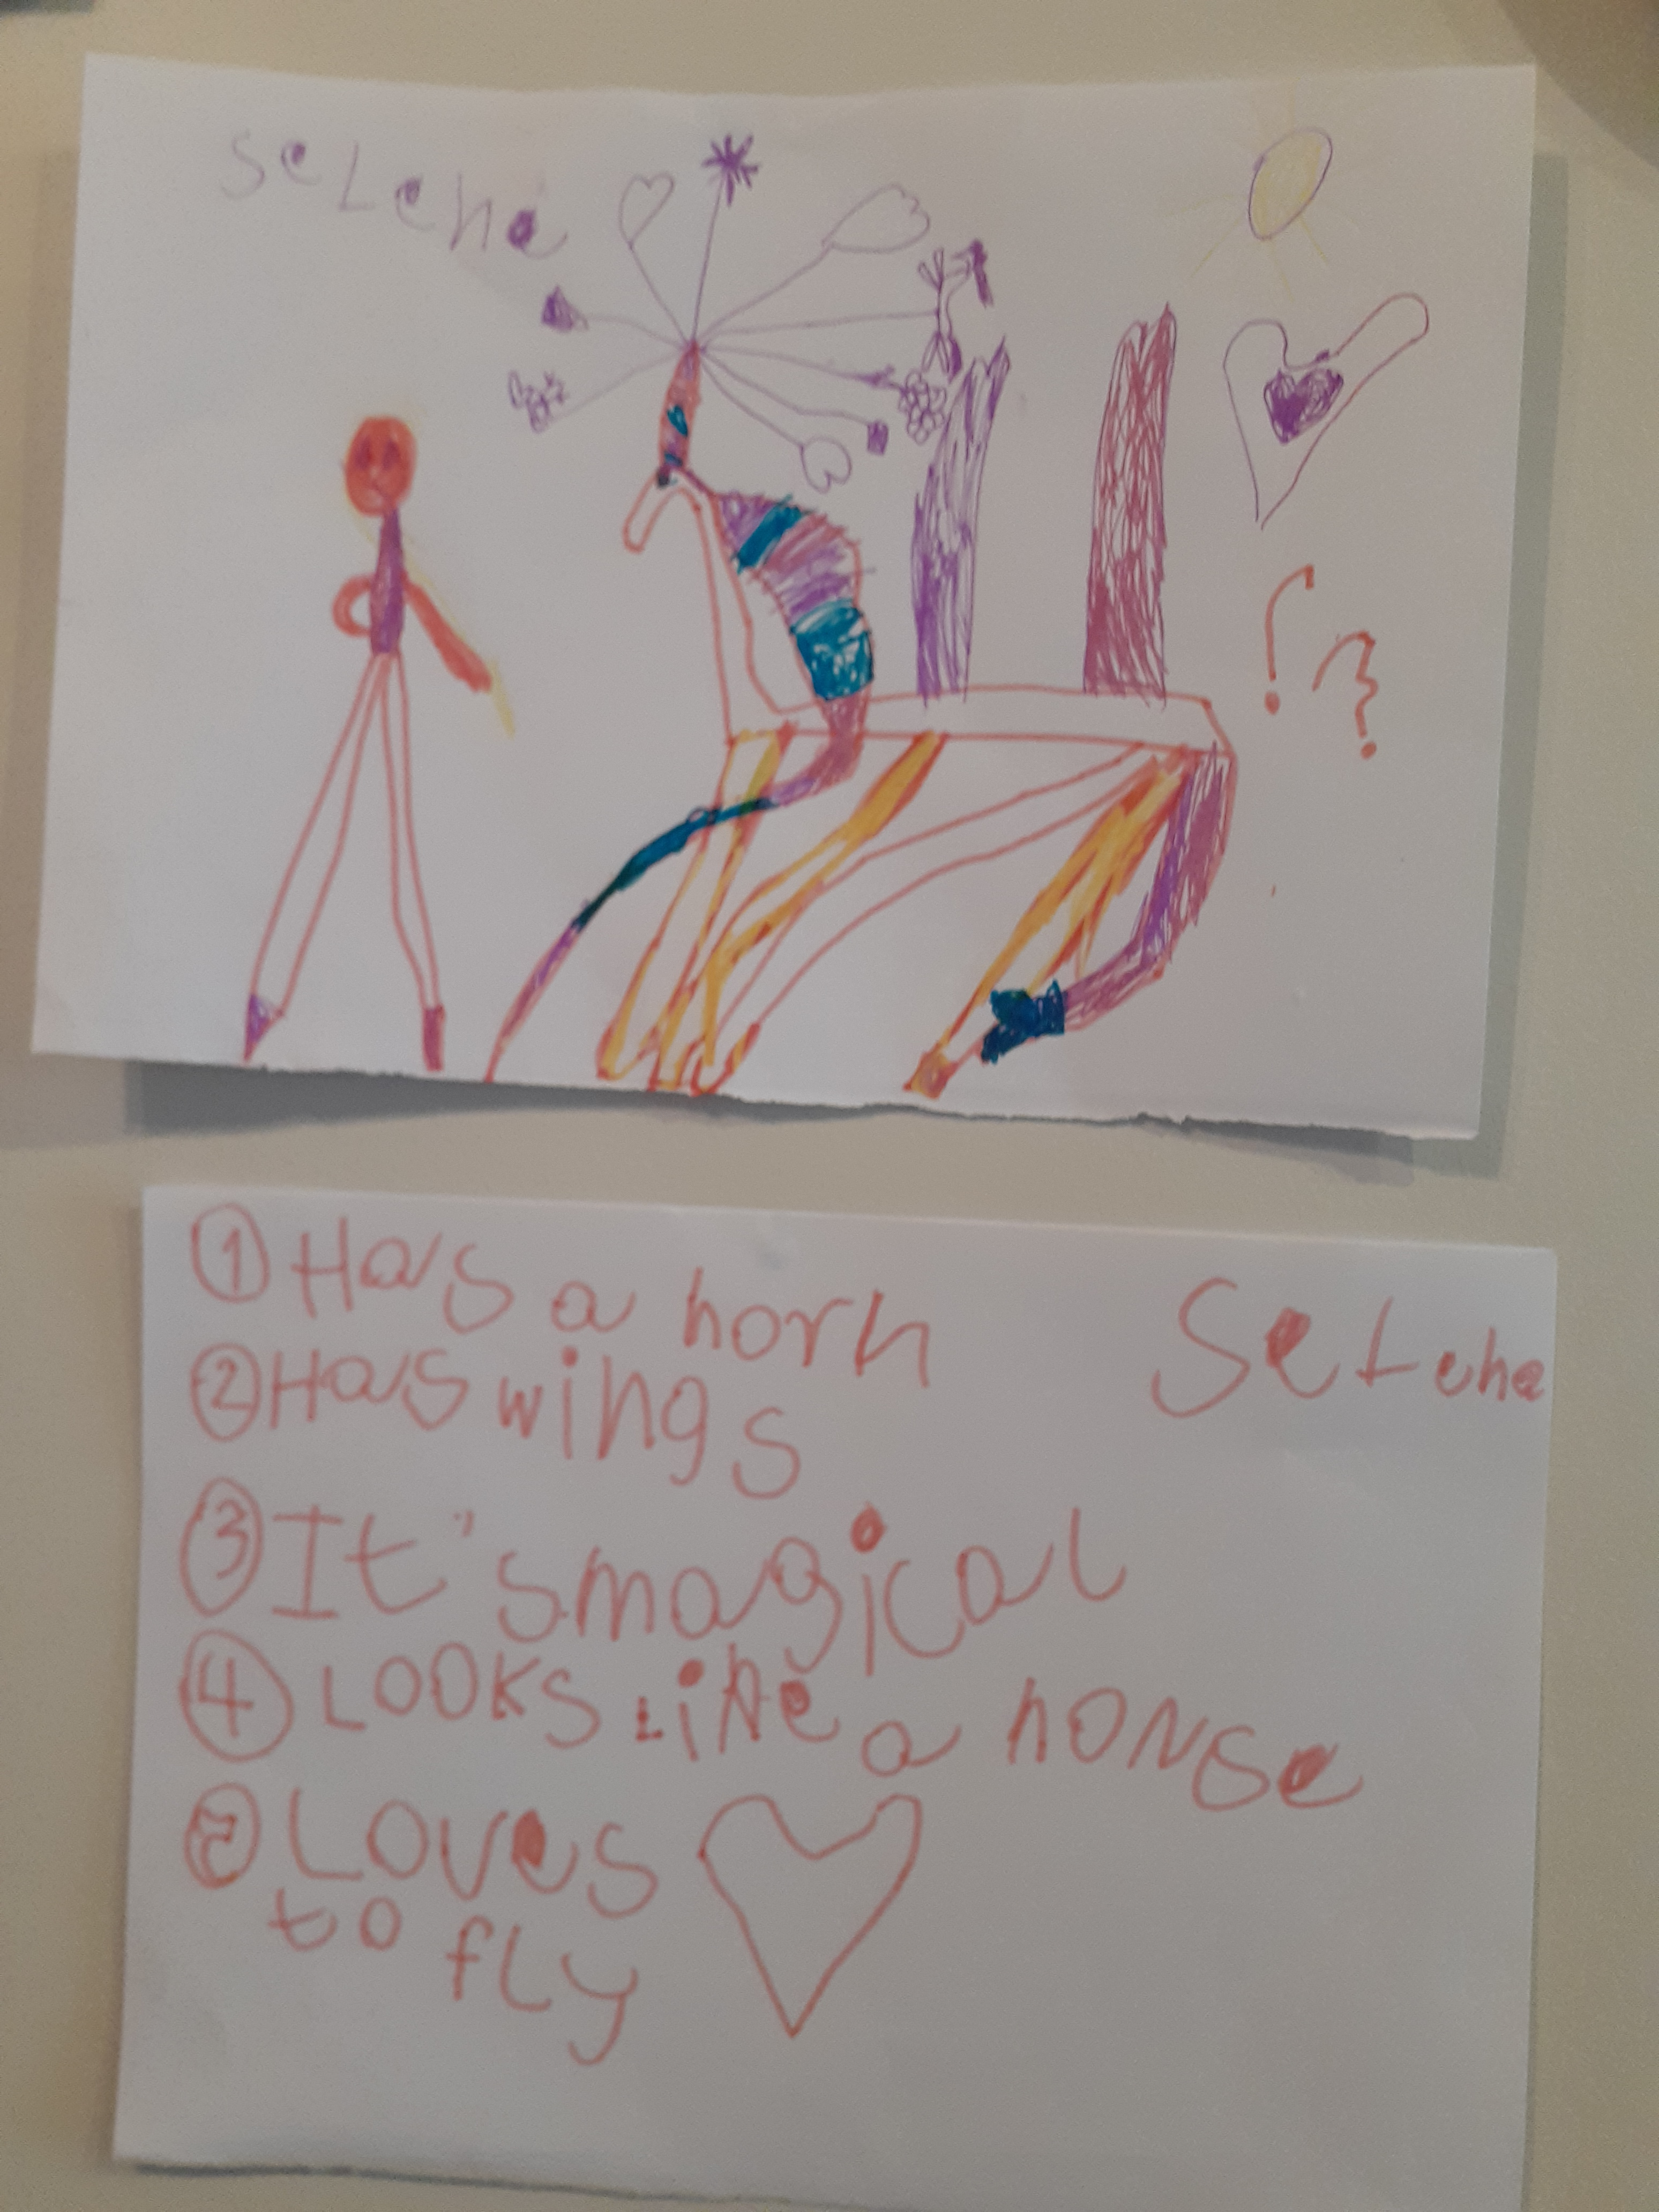 SeLena
! ?
① Has a horn
SeLena
② Has wings
③ It's magical
④ LOOKS Like a horse
⑤ Loves
to fly